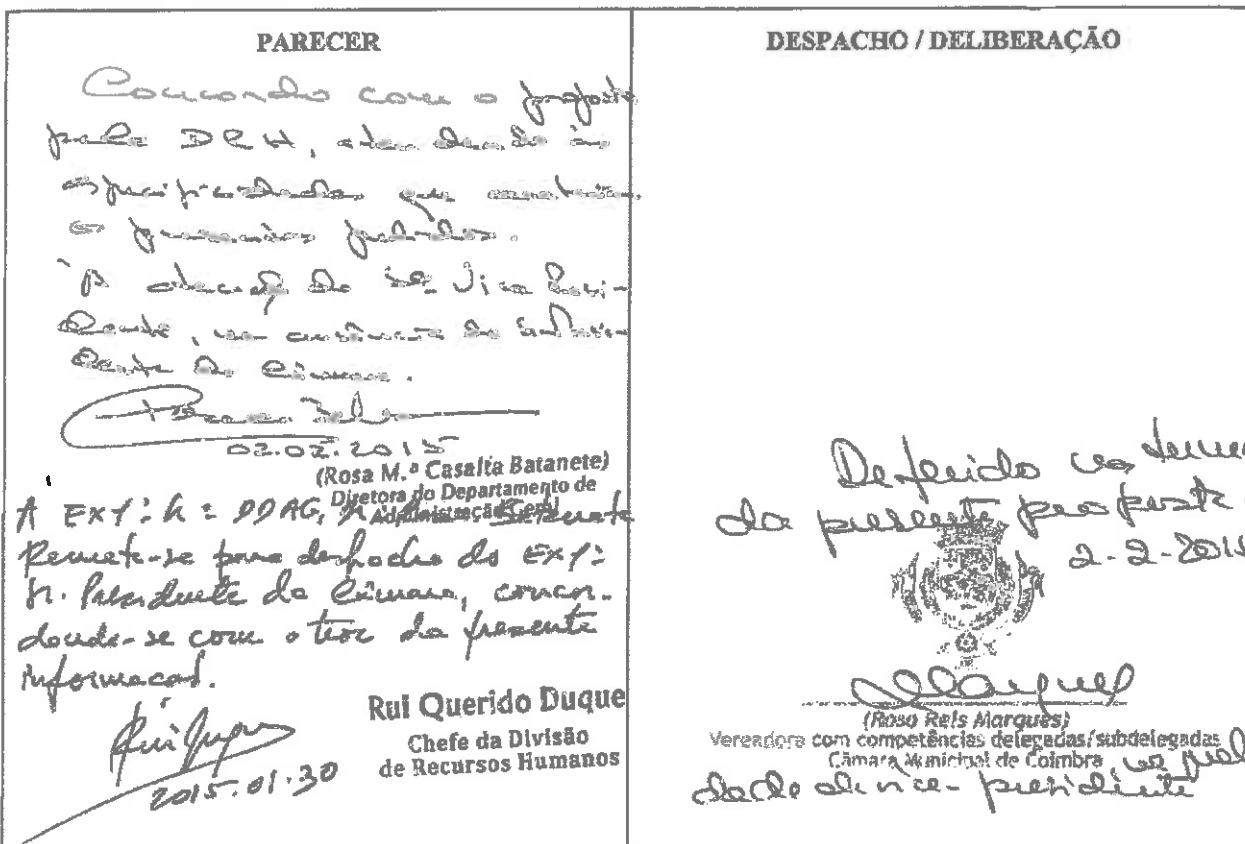 PARECER
Concordo com o proposto
pela DRH, atendendo às
especificidades que
os presentes pedidos.
À atenção do Sr. Vice Presi-
dente, na ausência do Sr. Presi-
dente da Câmara.
02.02.2015
(Rosa M.ª Casalta Batanete)
Diretora do Departamento de
Administração Geral
A Exmª Srª DDAG,
Remete-se para despacho do Exmº
Sr. Presidente da Câmara, concor-
dando-se com o teor da presente
informação.
Rui Duque
2015.01.30
Rui Querido Duque
Chefe da Divisão
de Recursos Humanos
DESPACHO / DELIBERAÇÃO
Deferido nos
da presente proposta
2-2-2015
(Rosa Reis Marques)
Vereadora com competências delegadas/subdelegadas
Câmara Municipal de Coimbra na quali
dade de vice-presidente